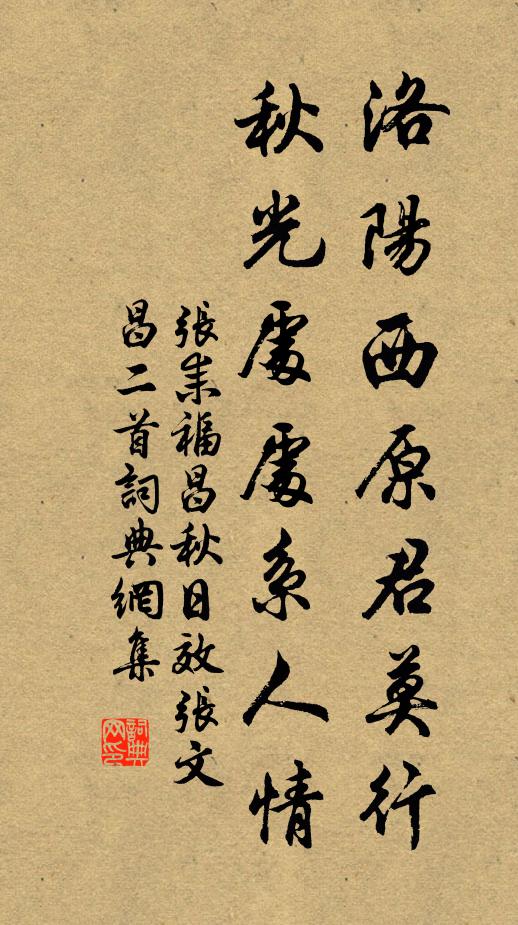 洛陽西原君莫行
秋光處處系人情
張耒福昌秋日效張文
昌二首詞典網集
詞典
网印